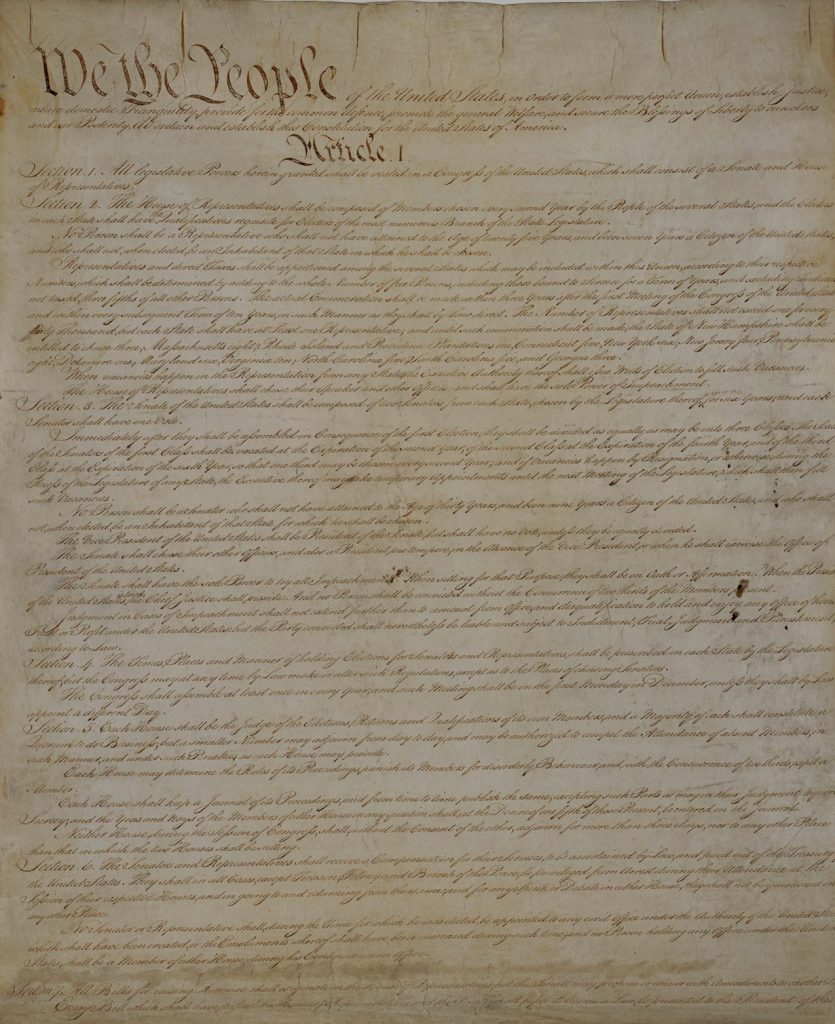 We the People of the United States, in Order to form a more perfect Union, establish Justice,
insure domestic Tranquility, provide for the common defence, promote the general Welfare, and secure the Blessings of Liberty to ourselves
and our Posterity, do ordain and establish this Constitution for the United States of America.
Article. I.
Section. 1. All legislative Powers herein granted shall be vested in a Congress of the United States, which shall consist of a Senate and House
of Representatives.
Section. 2. The House of Representatives shall be composed of Members chosen every second Year by the People of the several States, and the Electors
in each State shall have Qualifications requisite for Electors of the most numerous Branch of the State Legislature.
No Person shall be a Representative who shall not have attained to the Age of twenty five Years, and been seven Years a Citizen of the United States,
and who shall not, when elected, be an Inhabitant of that State in which he shall be chosen.
Representatives and direct Taxes shall be apportioned among the several States which may be included within this Union, according to their respective
Numbers, which shall be determined by adding to the whole Number of free Persons, including those bound to Service for a Term of Years, and excluding Indians
not taxed, three fifths of all other Persons. The actual Enumeration shall be made within three Years after the first Meeting of the Congress of the United States,
and within every subsequent Term of ten Years, in such Manner as they shall by Law direct. The Number of Representatives shall not exceed one for every
thirty Thousand, but each State shall have at Least one Representative; and until such enumeration shall be made, the State of New Hampshire shall be
entitled to chuse three, Massachusetts eight, Rhode Island and Providence Plantations one, Connecticut five, New York six, New Jersey four, Pennsylvania
eight, Delaware one, Maryland six, Virginia ten, North Carolina five, South Carolina five, and Georgia three.
When vacancies happen in the Representation from any State, the Executive Authority thereof shall issue Writs of Election to fill such Vacancies.
The House of Representatives shall chuse their Speaker and other Officers; and shall have the sole Power of Impeachment.
Section. 3. The Senate of the United States shall be composed of two Senators from each State, chosen by the Legislature thereof, for six Years; and each
Senator shall have one Vote.
Immediately after they shall be assembled in Consequence of the first Election, they shall be divided as equally as may be into three Classes. The Seats
of the Senators of the first Class shall be vacated at the Expiration of the second Year, of the second Class at the Expiration of the fourth Year, and of the third
Class at the Expiration of the sixth Year, so that one third may be chosen every second Year; and if Vacancies happen by Resignation, or otherwise, during the
Recess of the Legislature of any State, the Executive thereof may make temporary Appointments until the next Meeting of the Legislature, which shall then fill
such Vacancies.
No Person shall be a Senator who shall not have attained to the Age of thirty Years, and been nine Years a Citizen of the United States, and who shall
not, when elected, be an Inhabitant of that State for which he shall be chosen.
The Vice President of the United States shall be President of the Senate, but shall have no Vote, unless they be equally divided.
The Senate shall chuse their other Officers, and also a President pro tempore, in the Absence of the Vice President, or when he shall exercise the Office of
President of the United States.
The Senate shall have the sole Power to try all Impeachments. When sitting for that Purpose, they shall be on Oath or Affirmation. When the President
of the United States is tried, the Chief Justice shall preside: And no Person shall be convicted without the Concurrence of two thirds of the Members present.
Judgment in Cases of Impeachment shall not extend further than to removal from Office, and disqualification to hold and enjoy any Office of honor,
Trust or Profit under the United States: but the Party convicted shall nevertheless be liable and subject to Indictment, Trial, Judgment and Punishment,
according to Law.
Section. 4. The Times, Places and Manner of holding Elections for Senators and Representatives, shall be prescribed in each State by the Legislature
thereof; but the Congress may at any time by Law make or alter such Regulations, except as to the Places of chusing Senators.
The Congress shall assemble at least once in every Year, and such Meeting shall be on the first Monday in December, unless they shall by Law
appoint a different Day.
Section. 5. Each House shall be the Judge of the Elections, Returns and Qualifications of its own Members, and a Majority of each shall constitute a
Quorum to do Business; but a smaller Number may adjourn from day to day, and may be authorized to compel the Attendance of absent Members, in
such Manner, and under such Penalties as each House may provide.
Each House may determine the Rules of its Proceedings, punish its Members for disorderly Behaviour, and, with the Concurrence of two thirds, expel a
Member.
Each House shall keep a Journal of its Proceedings, and from time to time publish the same, excepting such Parts as may in their Judgment require
Secrecy; and the Yeas and Nays of the Members of either House on any question shall, at the Desire of one fifth of those Present, be entered on the Journal.
Neither House, during the Session of Congress, shall, without the Consent of the other, adjourn for more than three days, nor to any other Place
than that in which the two Houses shall be sitting.
Section. 6. The Senators and Representatives shall receive a Compensation for their Services, to be ascertained by Law, and paid out of the Treasury
the United States. They shall in all Cases, except Treason, Felony and Breach of the Peace, be privileged from Arrest during their Attendance at the
Session of their respective Houses, and in going to and returning from the same; and for any Speech or Debate in either House, they shall not be questioned in
any other Place.
No Senator or Representative shall, during the Time for which he was elected, be appointed to any civil Office under the Authority of the United States,
which shall have been created, or the Emoluments whereof shall have been encreased during such time; and no Person holding any Office under the United
States, shall be a Member of either House during his Continuance in Office.
Section. 7. All Bills for raising Revenue shall originate in the House of Representatives; but the Senate may propose or concur with Amendments as on other
Every Bill which shall have passed the House of Representatives and the Senate, shall, before it become a Law, be presented to the President of the